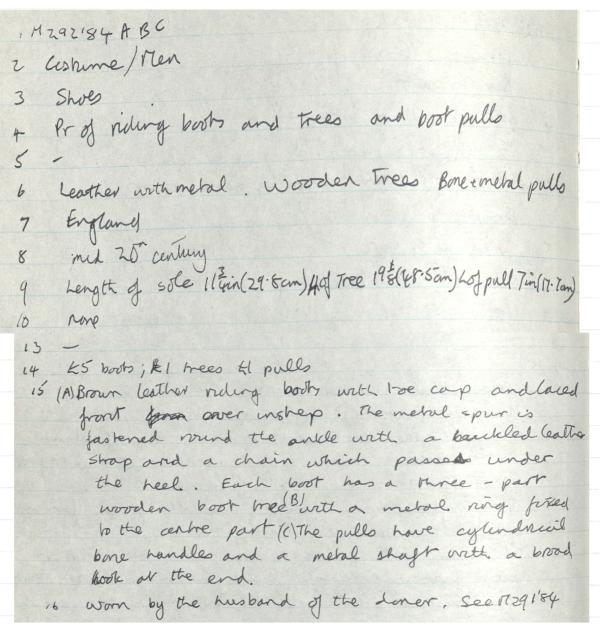 1 M292'84 A B C
2 Costume/Men
3 Shoes
4 Pr of riding boots and trees and boot pulls
5 -
6 Leather with metal. Wooden Trees Bone + metal pulls
7 England
8 mid 20th century
9 Length of sole 11¾in (29.8cm) H of Tree 19⅛(48.5cm) L of pull 7in (17.7cm)
10 None
13 -
14 £5 boots; £1 trees £1 pulls
15 (A) Brown leather riding boots with toe cap and laced
front over instep. The metal spur is
fastened round the ankle with a buckled leather
strap and a chain which passes under
the heel. Each boot has a three-part
wooden boot tree (B) with a metal ring fixed
to the centre part (C) The pulls have cylindrical
bone handles and a metal shaft with a broad
hook at the end.
16 Worn by the husband of the donor. See M291'84